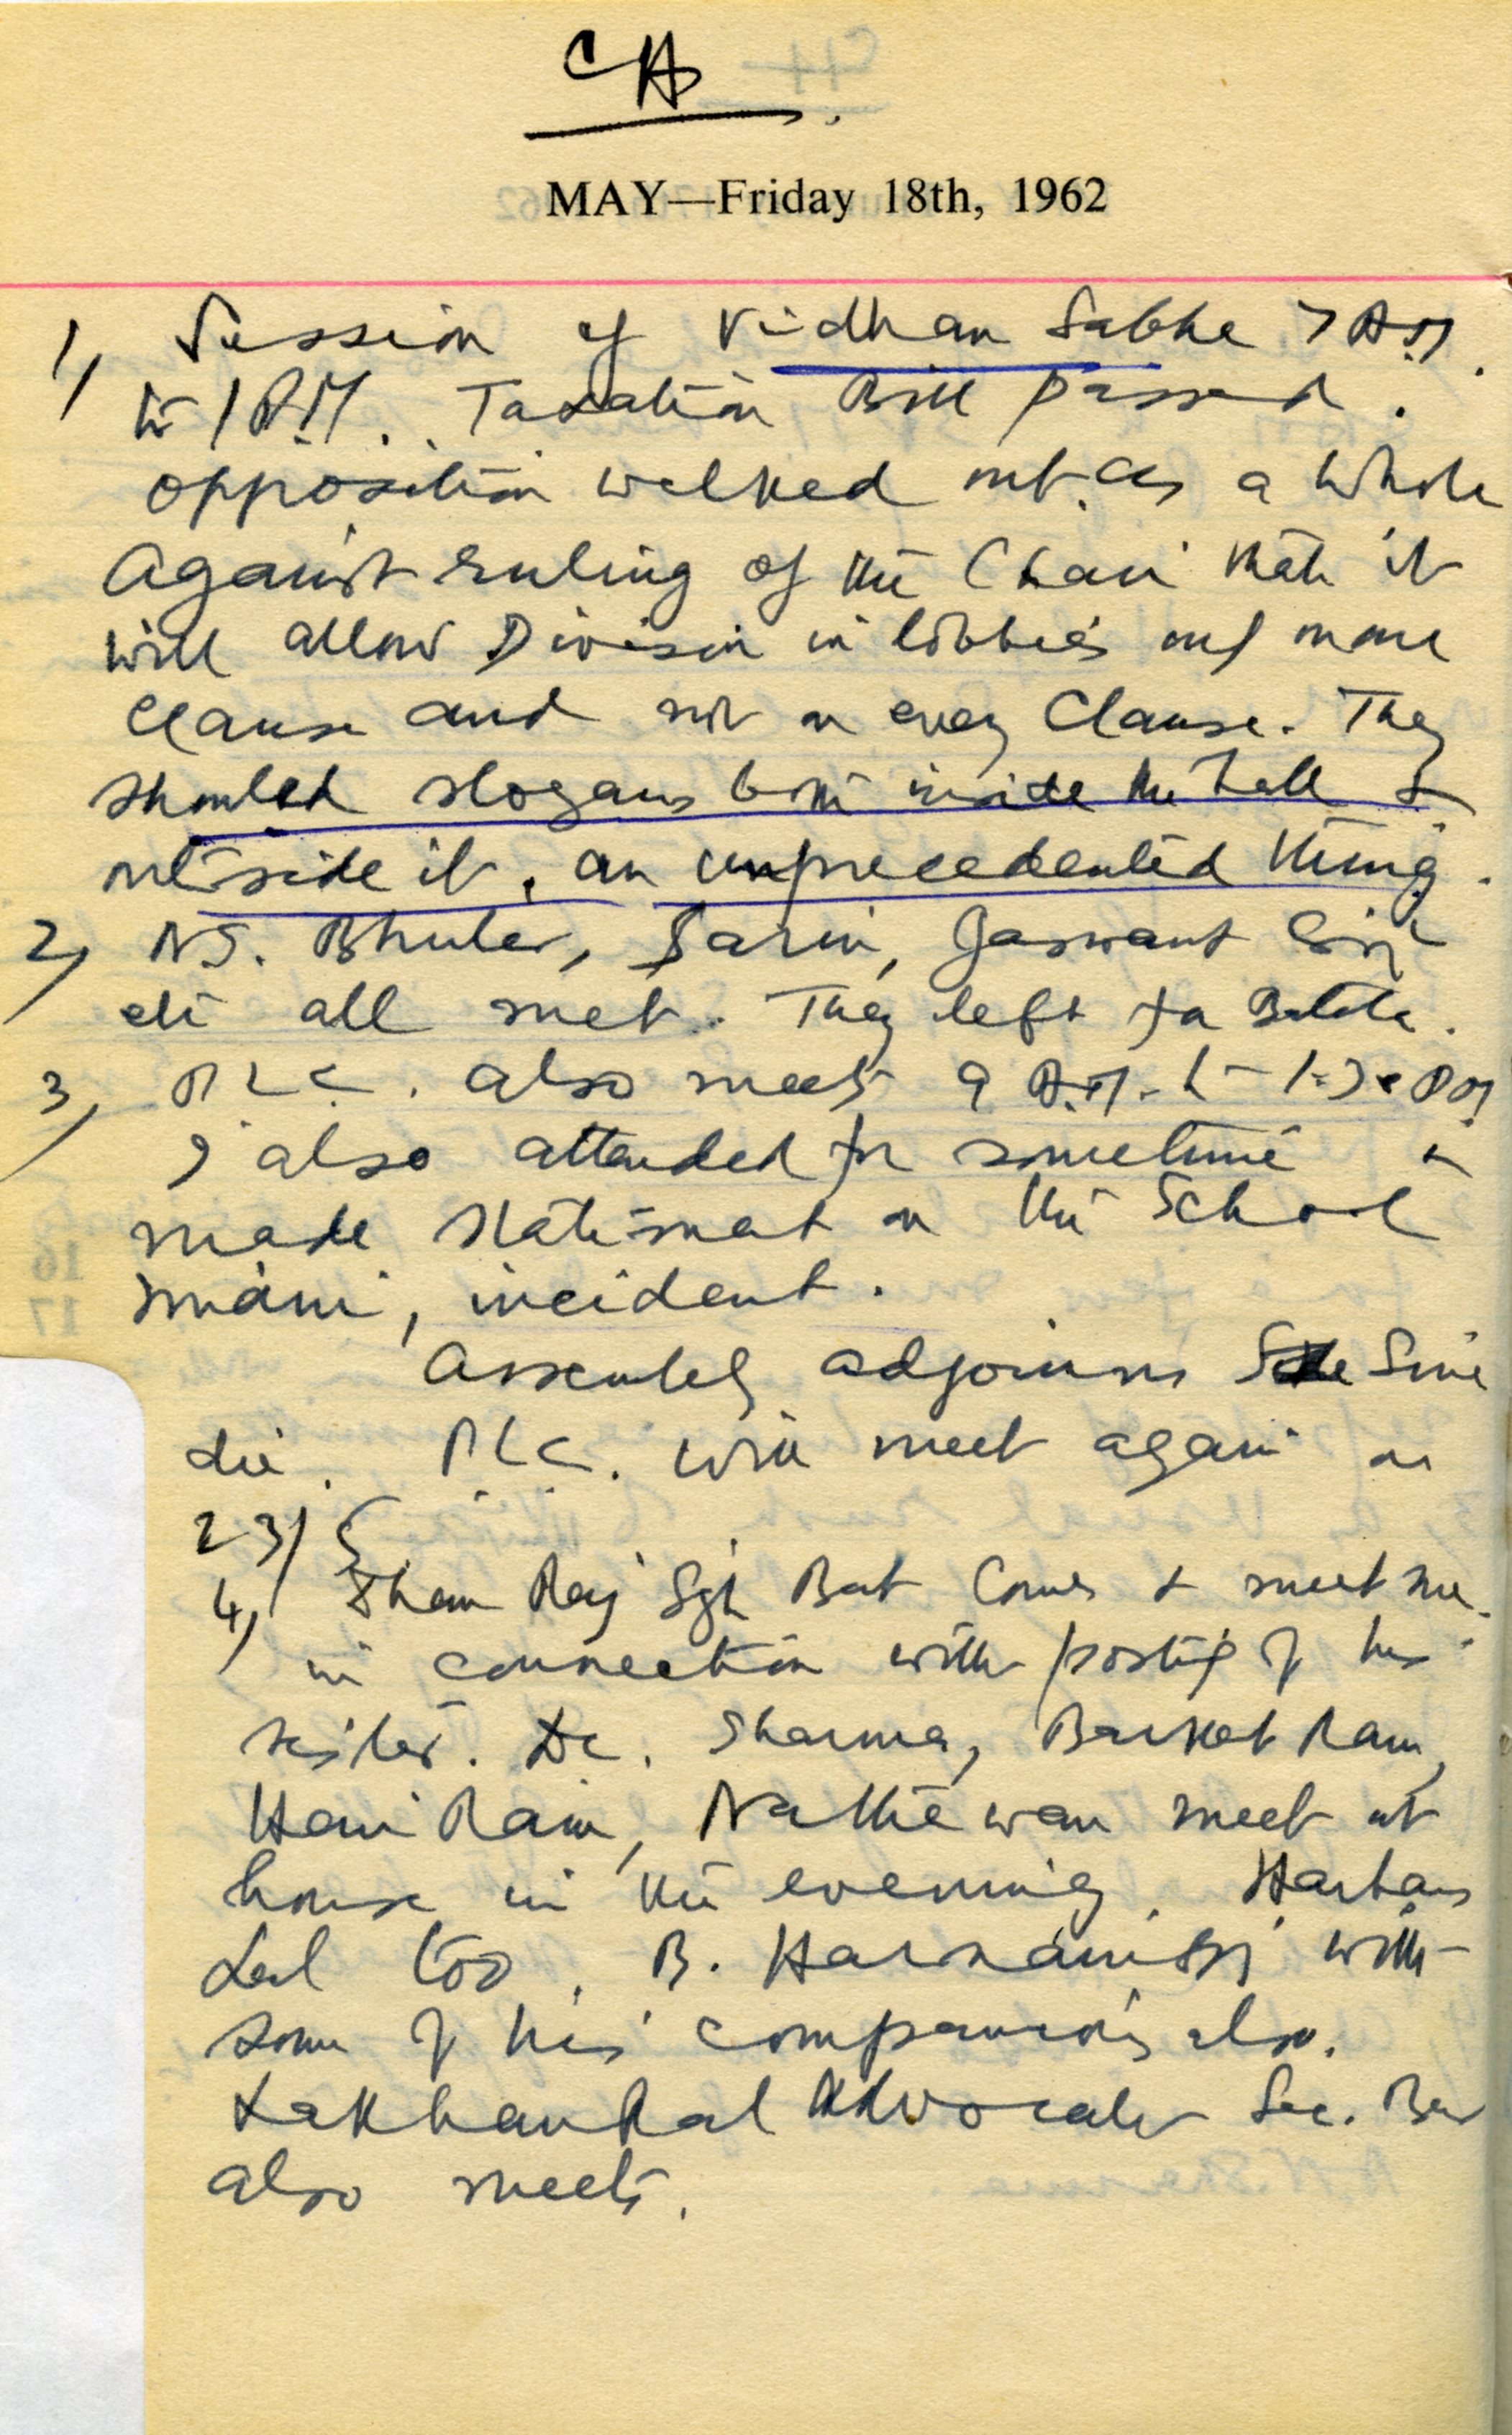 CH
MAY—Friday 18th, 1962
1, Session of Vidhan Sabha 7 A.M.
to 1 P.M. Taxation Bill passed.
opposition walked out as a whole
against ruling of the Chair that it
will allow Division in lobbies on
clause and not on every Clause. They
shouted slogans both inside the hall &
outside it, an unprecedented thing.
2, N.S. Bhuler, Sarin, Jaswant Singh
etc all met. They left for Batala.
3, P.L.C. also meets 9 A.M. to 1.30 PM
I also attended for sometime &
made statement on the School
incident.
Assembly adjourns Sine
die. P.L.C. will meet again on
23/5.
4, Sham Raj Sgh Bat comes & meet me.
in connection with posting of his
sister. Dr. Sharma, Barkat Ram,
Hari Ram, Nathewan meet at
house in the evening. Harbans
Lal too. B. Harnam Sgh with
some of his companions also.
Lakhanpal Advocate Sec. Bar
also meets.